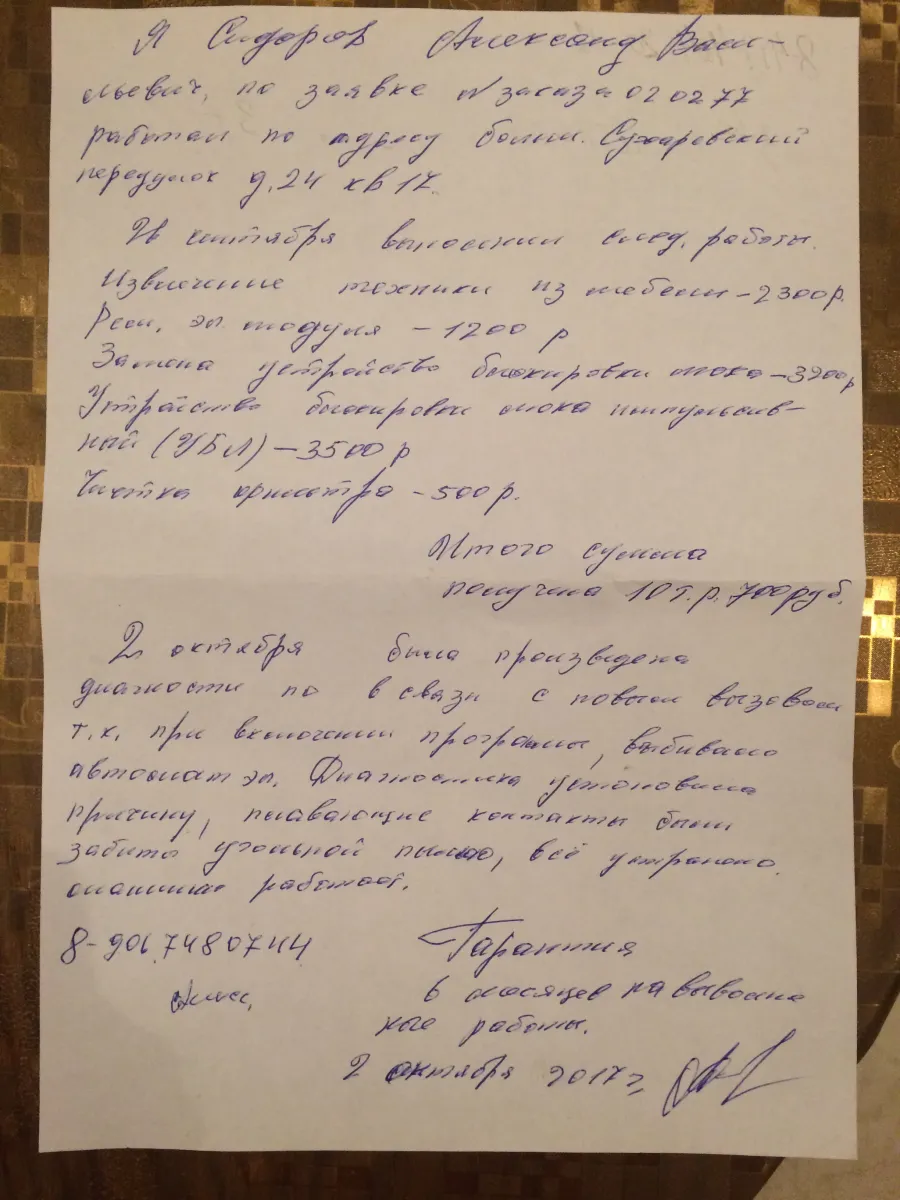 Я Сидоров Александ Васи-
льевич, по заявке N заказа 020277
работал по адресу больш. Сухаревский
переулок д.24 кв 17.
сентября выполнил след. работы.
Извлечение техники из мебели – 2300р.
Рем. эл. модуля – 1200 р
Замена устройства блокировки люка –3200р
Устройство блокировки люка импульсив-
ный (УБЛ) – 3500 р
Чистка – 500 р.
Итого сумма
получена 10 т.р. 700 руб.
2 октября была произведена
диагности по в связи с новым вызовом
т.к. при включении программы, выбивало
автомат эл. Диагностика установила
причину, плавающие контакты были
забиты угольной пылью, всё устранено.
машина работает.
8-901 7480744
Гарантия
6 месяцев на выполне
ные работы.
2 октября 2017 г.